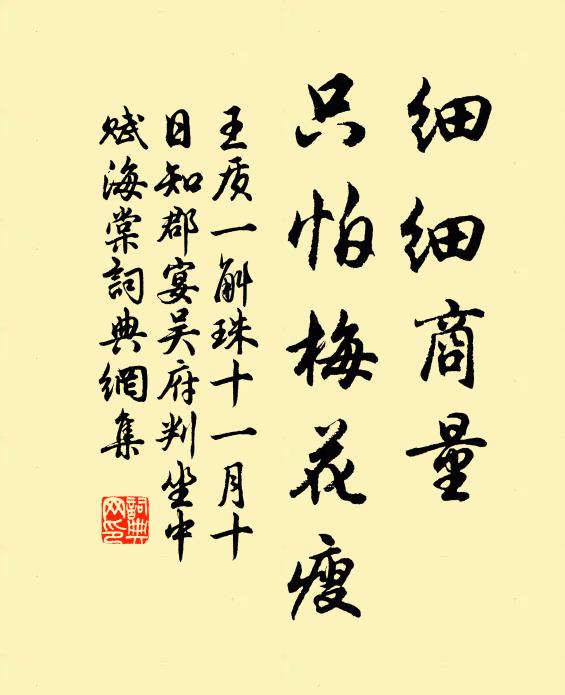 细细商量
只怕梅花瘦
王质一斛珠十一月十
日知郡宴吴府判坐中
赋海棠词典網集
詞典
网印